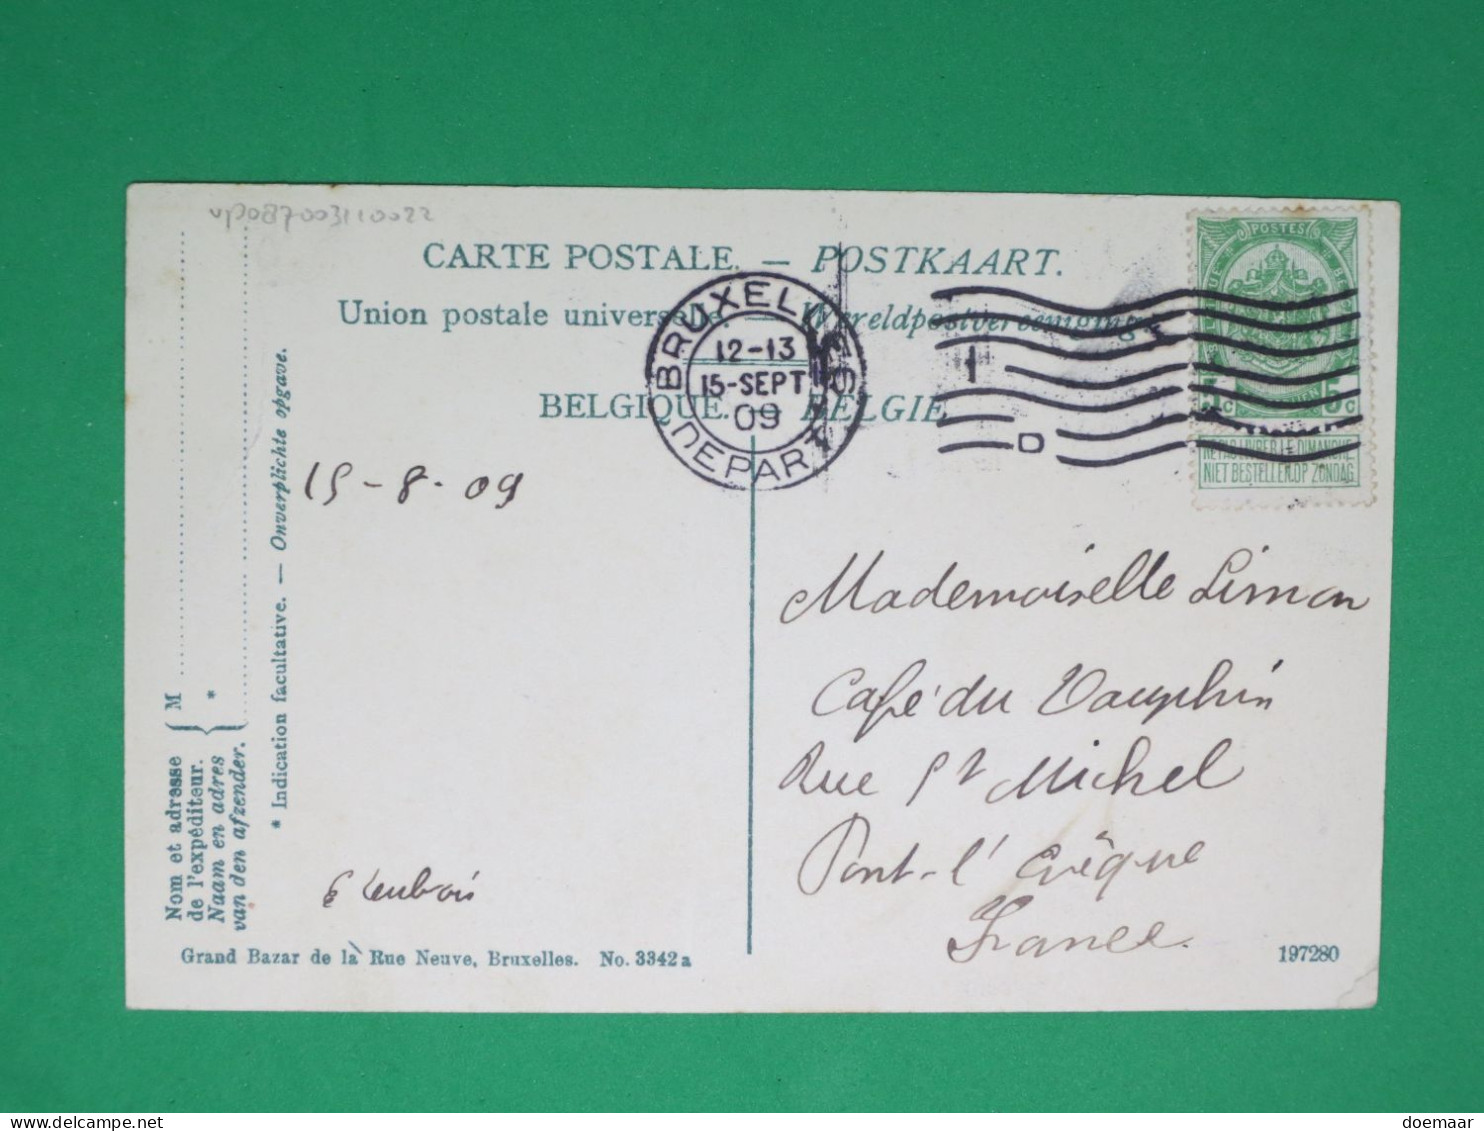 vp087003110022
CARTE POSTALE. — POSTKAART.
Union postale universelle. — Wereldpostvereeniging
BELGIQUE. — BELGIE
BRUXELLES
12-13
15-SEPT
09
DEPART
1
D
POSTES
5c 5c
NE PAS LIVRER LE DIMANCHE
NIET BESTELLEN OP ZONDAG
15-8-09
Mademoiselle Limon
Café du Dauphin
Rue St Michel
Pont-l'Evêque
France.
M
*
Nom et adresse
de l'expéditeur.
Naam en adres
van den afzender.
* Indication facultative. — Onverplichte opgave.
Grand Bazar de la Rue Neuve, Bruxelles. No. 3342a
197280
doemaar